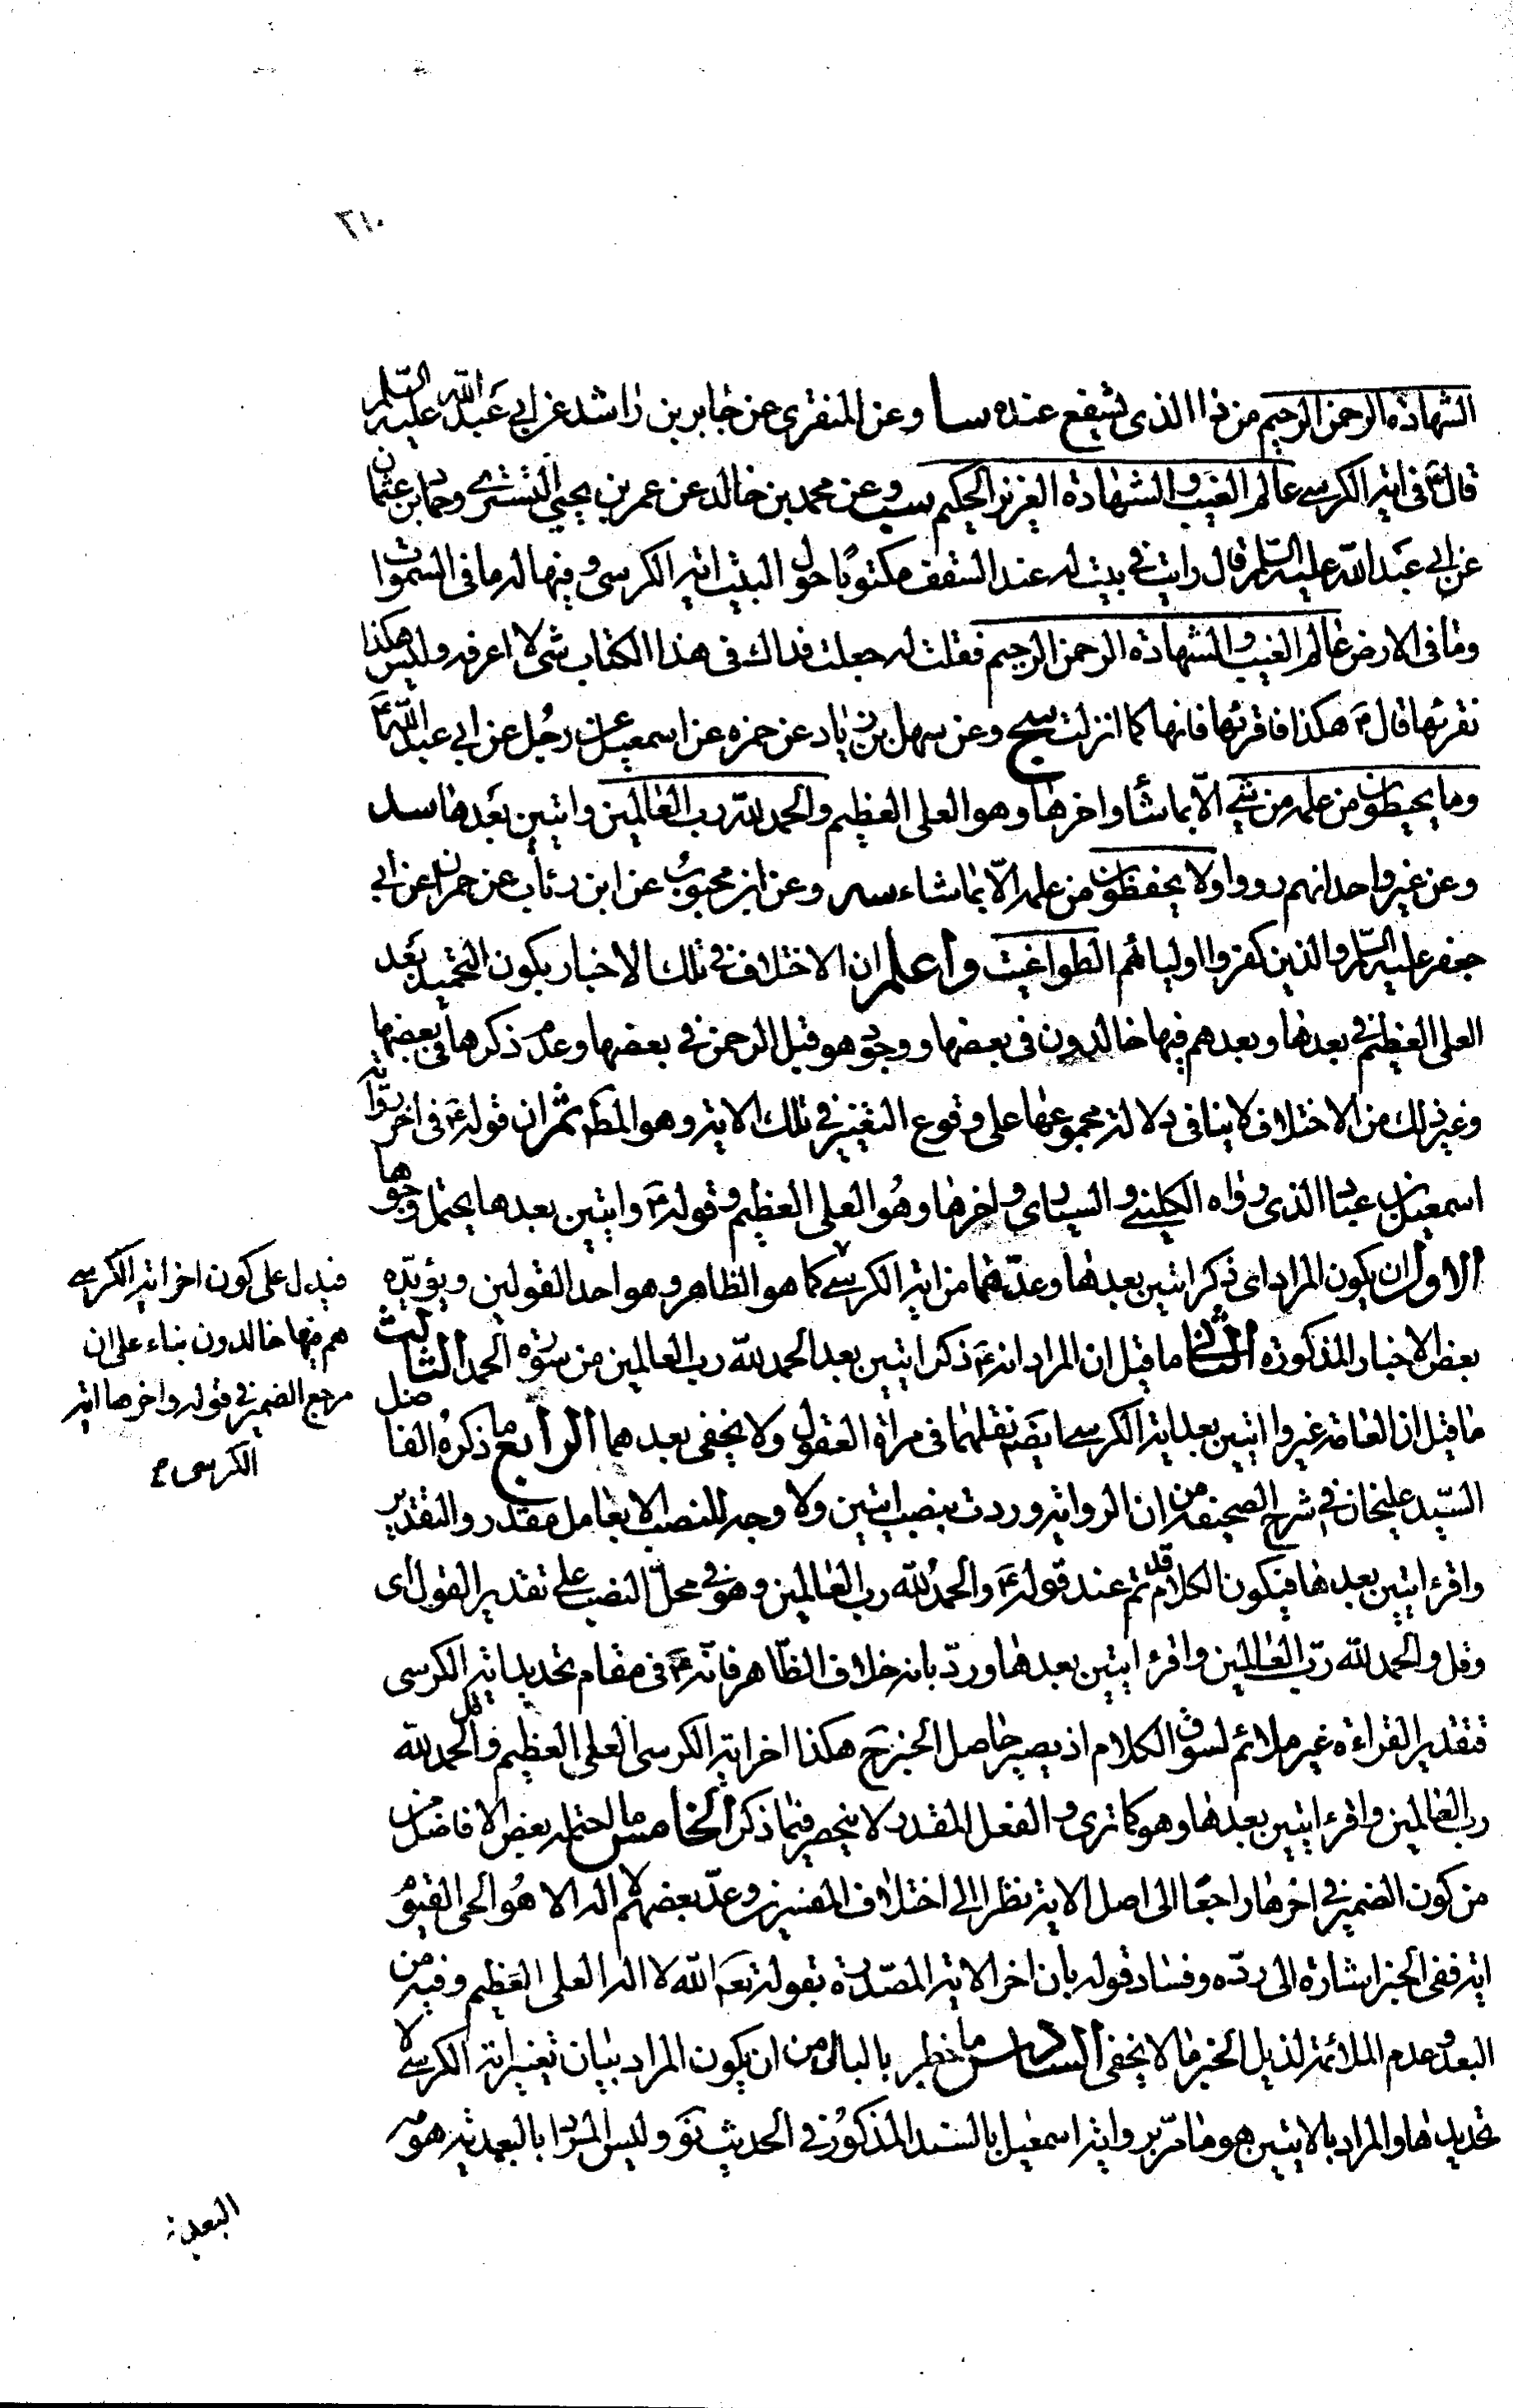 ٢١٠
الشهادة الرحمن الرحيم من ذا الذى يشفع عنده سا وعن المنقرى عن جابر بن راشد عن ابي عبد الله عليه السلم
قال ع في اية الكرسي عالم الغيب والشهادة العزيز الحكيم سب وعن محمد بن خالد عن عمر بن يحيى التسترى وحماد بن عثمان
عن ابي عبد الله عليه السلم قال رايت في بيت له عند السقف مكتوبا حول البيت اية الكرسى وفيها له ما فى السموات
وما فى الارض عالم الغيب والشهادة الرحمن الرحيم فقلت له جعلت فداك فى هذا الكتاب شى لا اعرفه وليس هكذا
نقرئها قال ع هكذا فاقرئها فانها كما انزلت سج وعن سهل بن زياد عن حمزه عن اسمعيل عن رجل عن ابى عبد الله ع
وما يحيطون من علمه من شئ الا بما شاء واخرها وهو العلى العظيم والحمد لله رب العالمين وايتين بعدها سد
وعن غير واحد انهم رووا ولا يحفظون من علمه الا بما شاء سه وعن ابن محبوب عن ابن رئاب عن حمران عن ابي
جعفر عليه السلم والذين كفروا اوليائهم الطواغيت واعلم ان الاختلاف في تلك الاخبار بكون التحميد بعد
العلى العظيم في بعدها وبعد هم فيها خالدون فى بعضها ووجود هو قبل الرحمن في بعضها وعدم ذكرها فى بعضها
وغير ذلك من الاختلاف لا ينافى دلالة مجموعها على وقوع التغيير في تلك الاية وهو المط ثم ان قوله ع فى اخر رواية
اسمعيل بن عباد الذى رواه الكليني والسيارى واخرها وهو العلى العظيم وقوله ع وايتين بعدها يحتمل وجوها
الاول ان يكون المراد اى ذكر ايتين بعدها وعدهما من اية الكرسي كما هو الظاهر وهو احد القولين ويؤيده
بعض الاخبار المذكورة الثانى ما قيل ان المراد انه ع ذكر ايتين بعد الحمد لله رب العالمين من سورة الحمد الثالث
ما قيل ان العامة غيروا ايتين بعد اية الكرسي ايضم نقلهما فى مراة العقول ولا يخفى بعدهما الرابع ما ذكره الفاضل
السيد عليخان في شرح الصحيفة من ان الرواية وردت بنصب ايتين ولا وجه للنصب الا بعامل مقدر والتقدير
واقرء ايتين بعدها فيكون الكلام قد تم عند قوله ع والحمد لله رب العالمين وهو في محل النصب على تقدير القول اى
وقل والحمد لله رب العالمين واقرء ايتين بعدها ورد بانه خلاف الظاهر فانه ع فى مقام تحديد اية الكرسى
فتقدير القراءة غير ملائم لسوق الكلام اذ يصير حاصل الخبر ح هكذا اخر اية الكرسى العلى العظيم وقل الحمد لله
رب العالمين واقرء ايتين بعدها وهو كما ترى والفعل المقدر لا ينحصر فيما ذكر الخامس ما احتمله بعض الافاضل من
من كون الضمير في اخرها راجعا الى اصل الاية نظرا الى اختلاف المفسرين وعد بعضهم لا اله الا هو الحى القيوم
اية ففى الخبر اشارة الى رده وفساد قوله بان اخر الاية المصدرة بقوله تعم الله لا اله العلى العظيم وفيه من
البعد وعدم الملائمة لذيل الخبر ما لا يخفى السادس ما خطر بالبال من ان يكون المراد بيان تغيير اية الكرسي لا
تحديدها والمراد بالايتين هو ما مر برواية اسمعيل بالسند المذكور في الحديث نو وليس المراد بالبعدية هو
فيدل على كون اخر اية الكرسي
هم فيها خالدون بناء على ان
مرجع الضمير في قوله واخرها اية
الكرسى
البعدية